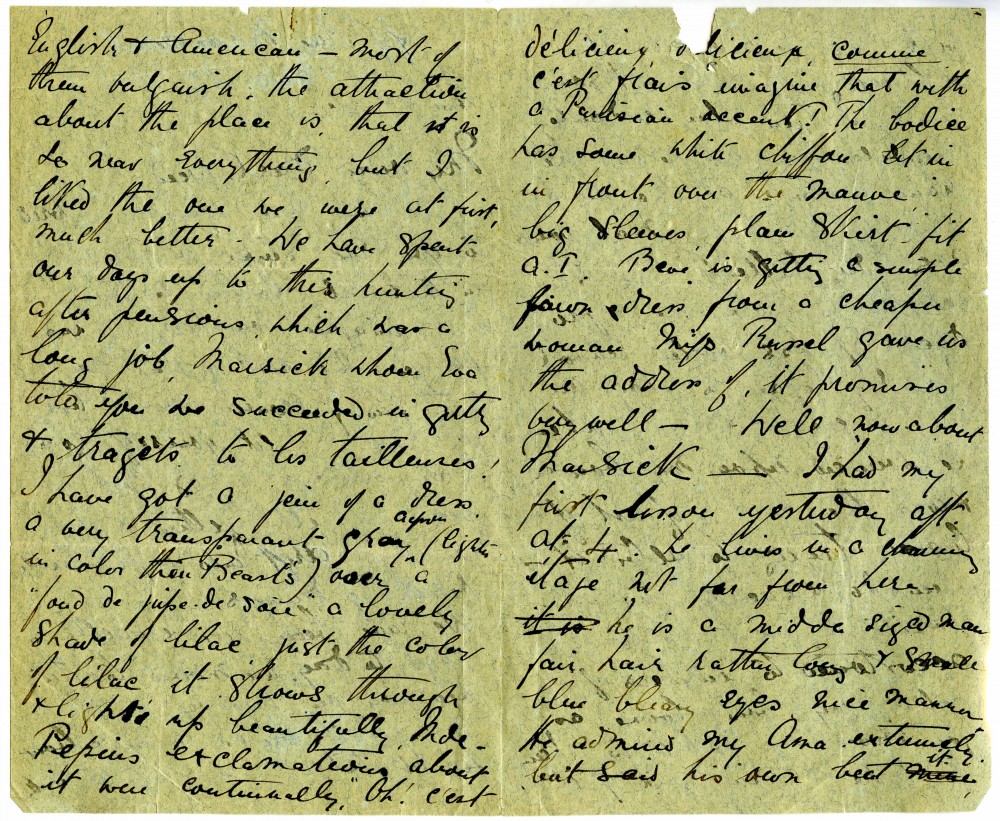 English & American – most of
them vulgarish. the attraction
about the place is, that it is
so near everything, but I
liked the one we were at first,
much better. We have spent
our days up to this hunting
after pensions which was a
long job, Marsick whom Eva
told you we succeeded in getting
& trajets to les tailleuses!
I have got a jem of a dress.
a very transparant gray (light
in color then Bearts) over a
"fond de jupe de soie" a lovely
shade of lilac just the color
of lilac it shows through
& lights up beautifully. Mde
Pepins exclamations about
it were continually, "Oh! c'est
délicieux, délicieux, comme
c'est frais imagine that with
a Parisian accent! The bodice
has some white chiffon let in
in front over the mauve
big sleeves, plain skirt fit
A.I. Beve is getting a simple
fawn dress from a cheaper
woman Miss Russel gave us
the address of, it promises
very well – Well now about
Marsick — I had my
first lesson yesterday aft
at 4. he lives in a charming
étage not far from here
it is he is a middle sized man
fair hair rather long &
blue bleary eyes nice manner
He admired my Ama extremely.
but said his own beat it